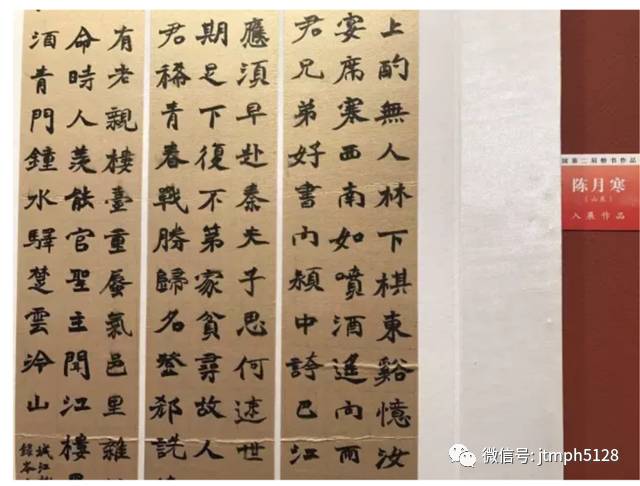 上酌無人林下棋東谿憶汝
宴席寒西南如噴酒遥向雨
君兄弟好書內頻中誇巴江
應須早赴秦夫子思何速世
期足下復不第家貧尋故人
君稀青春戰勝歸名登郄詵
有老親樓臺重蜃氣邑里雜
命時人羨能官聖主聞江樓
酒青門鐘水驛楚雲冷山
城江
錄岑
国第二届楷书作品
陈月寒
（山东）
入展作品
微信号: jtmph5128